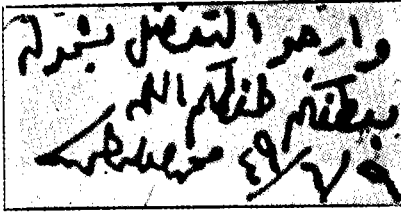 وارجو التفضل بشموله
بعطفكم حفظكم الله
٤٩/٧/٩